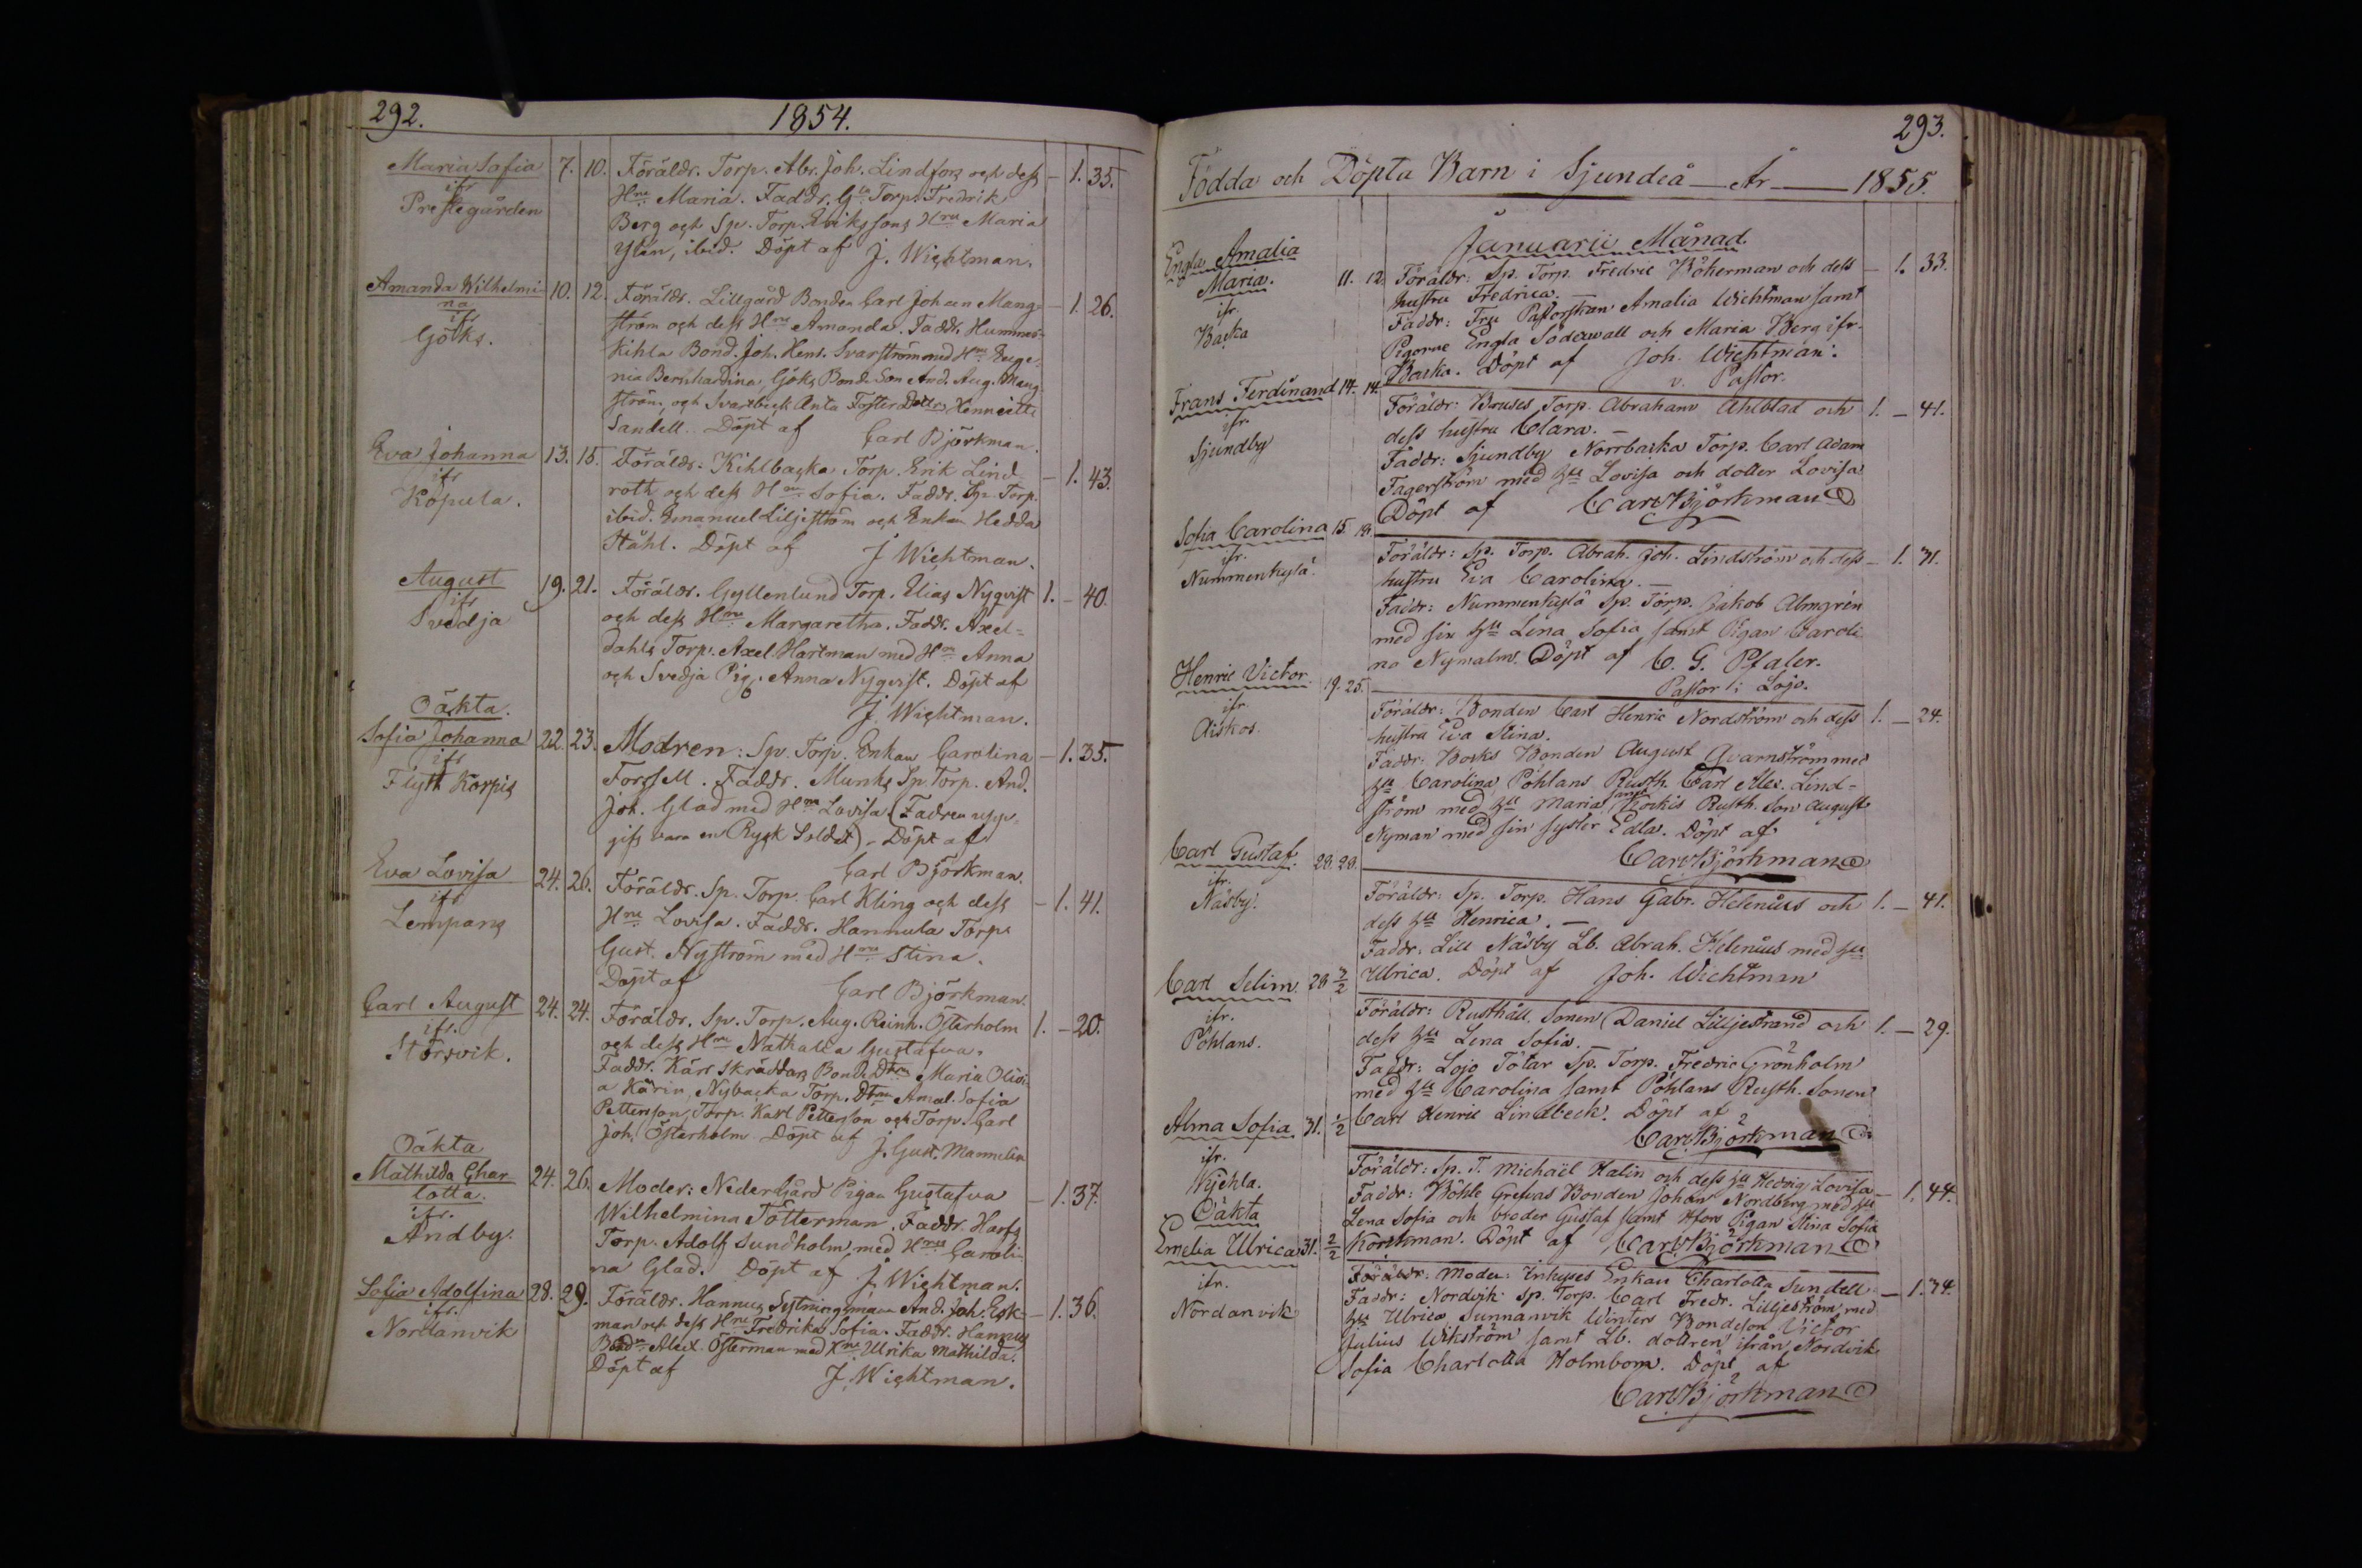 292.
1854.
Maria Sofia 7. 10. Föräldr. Torp. Abr. Joh. Lindfors och dess — 1. 35.
ifr Hru Maria. Faddr. Gla Torp. Fredrik
Prestegården Berg och Sp. Torp. Erikssons Hru Maria
Ylén, ibid. Döpt af J. Wichtman.
Amanda Wilhelmi- 10. 12. Föräldr. Lillgård Bonden Carl Johan Mang- — 1. 26.
na ström och dess Hru Amanda. Faddr. Hummer-
ifr Kihla Bond. Joh. Henr. Svarström med Hru Euge-
Göks. nia Bernhardina, Göks Bonde Son And. Aug. Mang-
ström, och Svartbeck Anta Foster Dottr. Henriette
Sandell. Döpt af Carl Björkman.
Eva Johanna 13. 15. Föräldr: Kihlbacka Torp. Erik Lind- — 1. 43.
ifr roth och dess Hru Sofia. Faddr. Sp. Torp.
Köpula. ibid. Emanuel Liljeström och Enkan Hedda
Ståhl. Döpt af J Wichtman.
August 19. 21. Föräldr. Gyllenlund Torp. Elias Nyqvist 1. — 40.
ifr och dess Hru Margaretha. Faddr. Axel-
Svedja dahls Torp. Axel Hartman med Hru Anna
och Svedja Pig. Anna Nyqvist. Döpt af
J. Wichtman.
Oäkta.
Sofia Johanna 22. 23. Modren: Sp. Torp. Enkan Carolina — 1. 35.
ifr Forssell. Faddr. Munks Sp. Torp. And.
Flyt Korpis Joh. Glad med Hru Lovisa (Fadren upp-
gifs vara en Rysk Soldat). Döpt af
Carl Björkman.
Eva Lovisa 24. 26. Föräldr. Sp. Torp. Carl Kling och dess — 1. 41.
ifr Hru Lovisa. Faddr. Hannula Torp.
Lempans Gust. Nyström med Hru Stina.
Döpt af Carl Björkman.
Carl August 24. 24. Föräldr. Sp. Torp. Aug. Reinh. Österholm 1. — 20.
ifr. och dess Hru Nathalia Gustafva.
Störsvik. Faddr. Kärr Skräddars Bond. Dtrn Maria Olivi-
a Kärin, Nybacka Torp. Dtrn Amal. Sofia
Petterson, Torp. Karl Petterson och Torp. Carl
Joh. Österholm. Döpt af J. Gust. Mannelin
Oäkta
Mathilda Char- 24. 26. Moder: Nedergård Pigan Gustafva — 1. 37.
lotta. Wilhelmina Tötterman. Faddr. Harfs
ifr. Torp. Adolf Sundholm med Hru Caroli-
Andby. na Glad. Döpt af J. Wichtman.
Sofia Adolfina 28. 29. Föräldr. Hannus Sytningsman And. Joh. Ek- — 1. 36.
ifr. man och dess Hru Fredrika Sofia. Faddr. Hannus
Nordanvik Bondn Alex. Österman med Hru Ulrika Mathilda.
Döpt af J. Wichtman.
293.
Födda och Döpta Barn i Sjundeå — År — 1855.
Januarii Månad.
Engla Amalia
Maria. 11. 12. Föräldr: Sp. Torp. Fredric Böherman och dess — 1. 33.
ifr. hustru Fredrica. —
Backa Faddr: Fru Pastorskan Amalia Wichtman samt
Pigorne Engla Söderwall och Maria Berg ifr.
Backa. Döpt af Joh. Wichtman.
v. Pastor.
Frans Ferdinand 14. 14. Föräldr: Bruses Torp. Abraham Ahlblad och 1. — 41.
ifr. dess hustru Clara. —
Sjundby Faddr: Sjundby Norrbacka Torp. Carl Adam
Fagerström med hu Lovisa och dotter Lovisa
Döpt af Carl Björkman
Sofia Carolina 15. 18. Föräldr: Sp. Torp. Abrah. Joh. Lindström och dess — 1. 31.
ifr. hustru Eva Carolina. —
Nummenkylä. Faddr: Nummenkylä Sp. Torp. Jakob Almgrén
med sin hu Lena Sofia samt Pigan Caroli
na Nymalm. Döpt af C. G. Pfaler.
Pastor i Lojo.
Henric Victor 19. 25. Föräldr: Bonden Carl Henric Nordström och dess 1. — 24.
ifr. hustru Eva Stina.
Aiskos. Faddr: Bocks Bonden August Qvarnström med
hu Carolina, Pöhlans Rusth. Carl Alex. Lind-
ström med hu Maria samt Kockis Rusth. Son August
Nyman med sin syster Edla. Döpt af
Carl Björkman
Carl Gustaf. 28. 28. Föräldr: Sp. Torp. Hans Gabr. Helenius och 1. — 41.
ifr. dess hu Henrica. —
Näsby. Faddr. Lill Näsby Lb. Abrah. Helenius med hu
Ulrica. Döpt af Joh. Wichtman
Carl Selim. 28 2/2 Föräldr: Rusthåll. Sonen Daniel Lilljestrand och 1. — 29.
ifr. dess hu Lena Sofia.
Pöhlans. Faddr: Lojo Tötar Sp. Torp. Fredric Grönholm
med hu Carolina samt Pöhlans Rusth. Sonen
Carl Henric Lindbeck. Döpt af
Carl Björkman
Alma Sofia. 31. 1/2 Föräldr: Sp. T. Michaël Halin och dess hu Hedvig Lovisa — 1. 44.
ifr. Faddr: Böhle Grefvas Bonden Johan Nordberg med hu
Kjehla. Lena Sofia och broder Gustaf samt Pigan Stina Sofia
Korkman. Döpt af Carl Björkman
Oäkta
Emelia Ulrica 31. 2/2 Föräldr: Moder: Inhyses Enkan Charlotta Sundell. — 1. 34.
ifr. Faddr: Nordvik Sp. Torp. Carl Fredr. Lilljeström med
Nordanvik hu Ulrica Sunnanvik Winters Bondeson Victor
Julius Wikström samt Lb. dottren ifrån Nordvik
Sofia Charlotta Holmbom. Döpt af
Carl Björkman